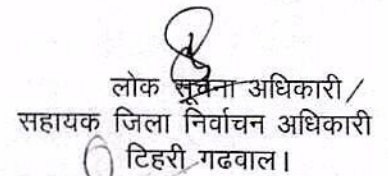 लोक सूचना अधिकारी /
सहायक जिला निर्वाचन अधिकारी
टिहरी गढवाल।